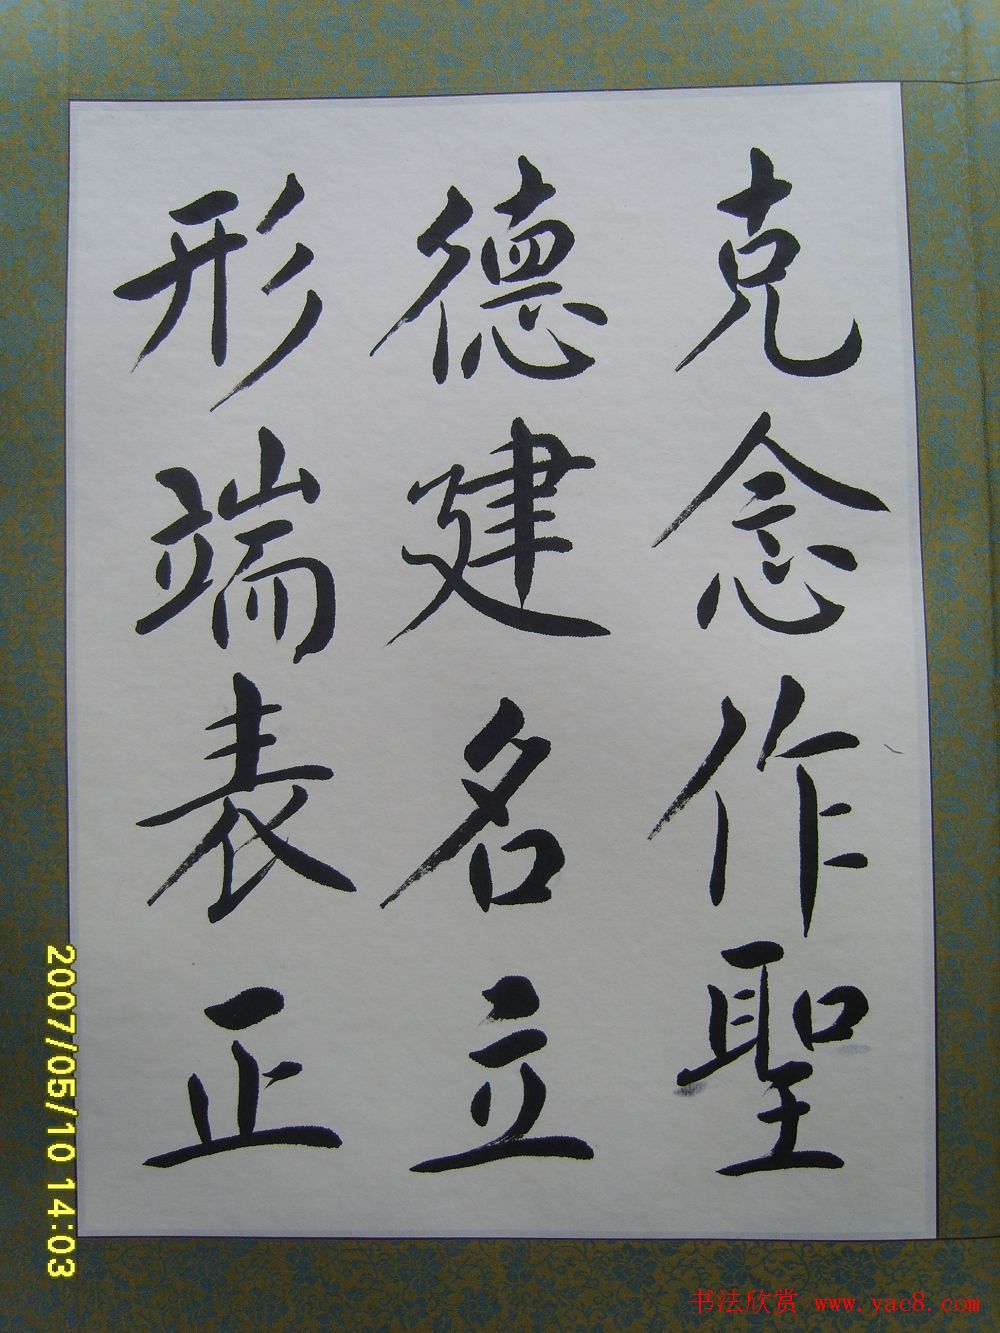 克念作聖
德建名立
形端表正
2007/05/10 14:03
书法欣赏 www.yac8.com